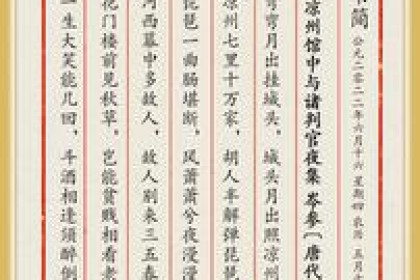 简
公元二零二二年六月十六 星期四 农历 五月
凉州馆中与诸判官夜集 岑参〔唐代
弯弯月出挂城头，城头月出照凉州
凉州七里十万家，胡人半解弹琵琶
琵琶一曲肠堪断，风萧萧兮夜漫漫
河西幕中多故人，故人别来三五春
花门楼前见秋草，岂能贫贱相看老
一生大笑能几回，斗酒相逢须醉倒